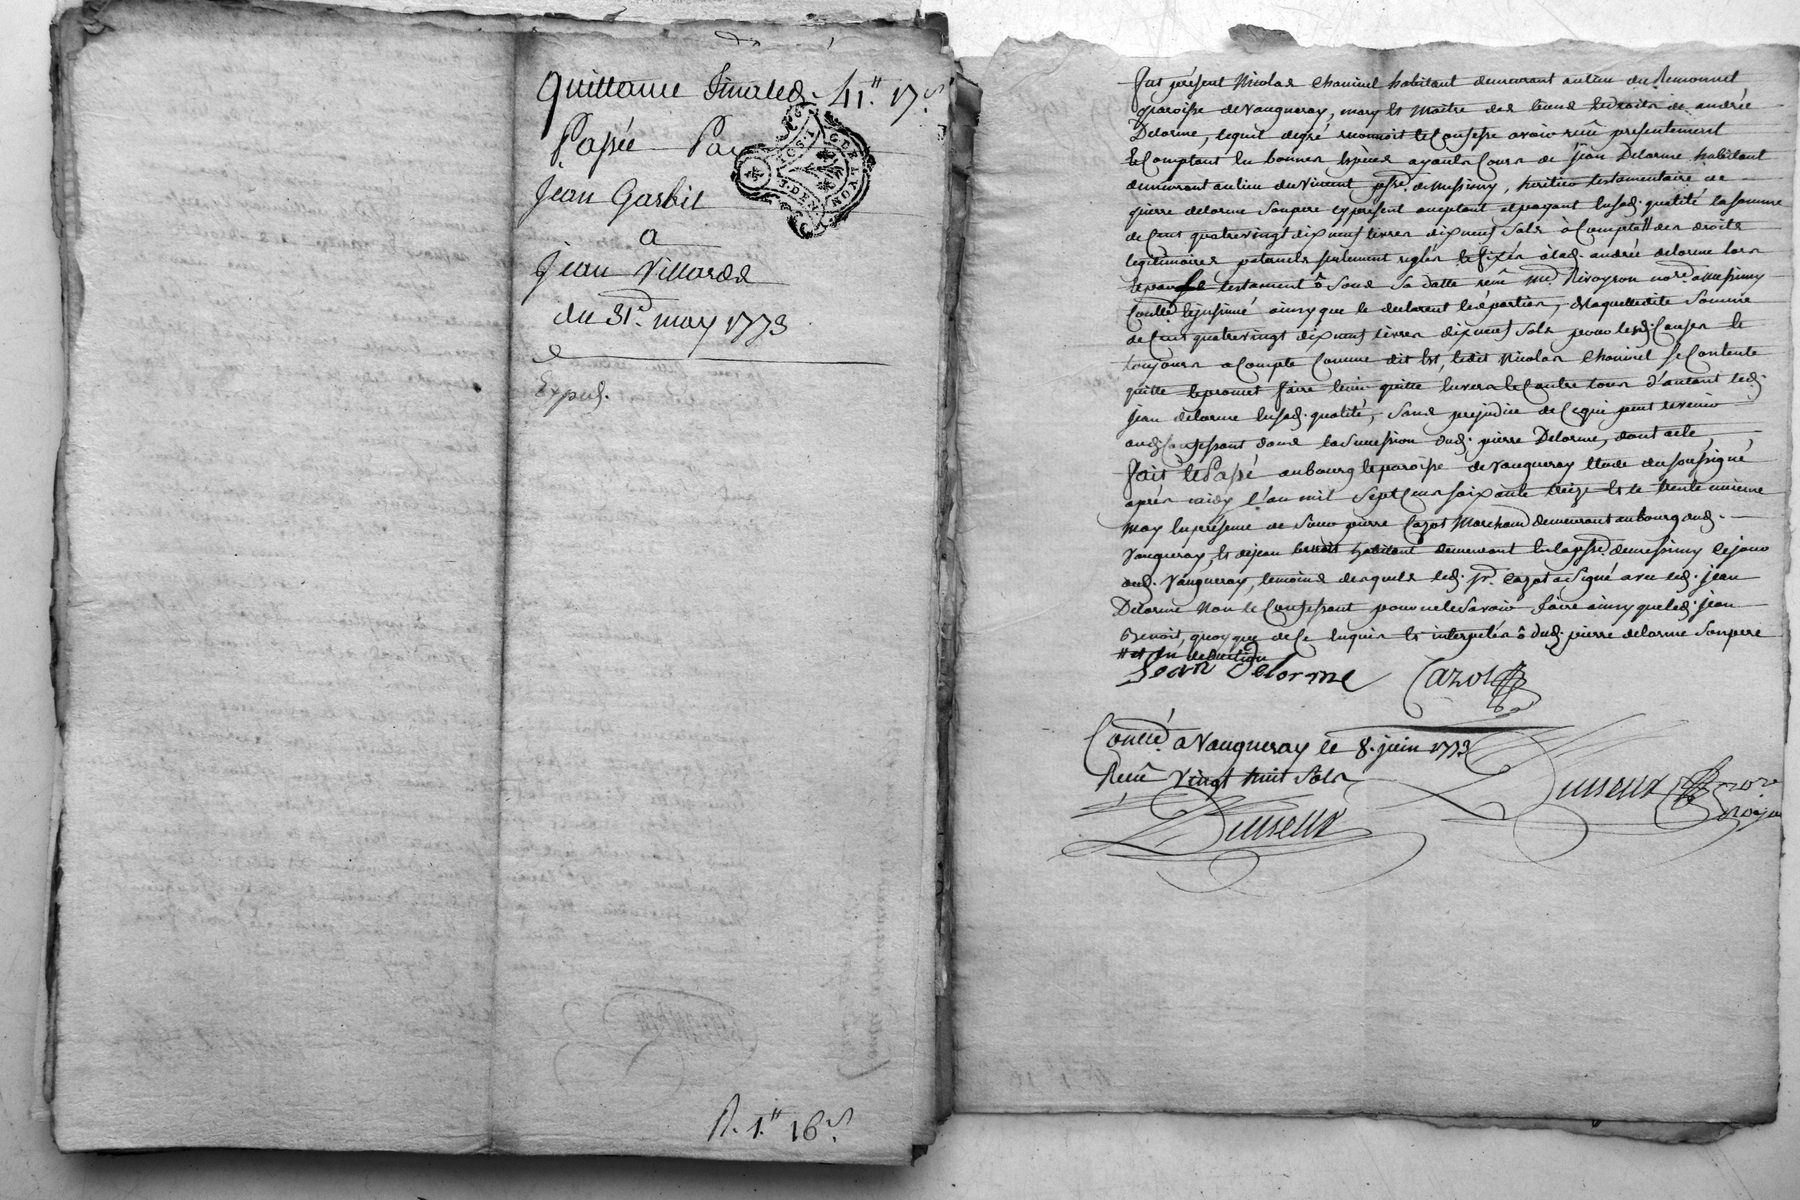 quittance finale de 41" 17 s
Passée Par
Jean Gasbit
a
Jean Villarde
du 31e. may 1773
Exped.
R. 1" 16 s
Fut présent Nicolas Chavinel habitant demeurant au lieu du Remonnel
paroisse de Vaugneray, mary et maitre des biens et droits de andrée
Delorme, lequel de gré reconnoit et confesse avoir reçû presentement
et comptant en bonnes especes ayants cours de jean Delorme habitant
demeurant au lieu du Vincent psse. de messimy, heritier testamentaire de
pierre delorme son pere cy present acceptant et payant en lad. qualité la somme
de Cent quatre vingt dix neuf livres dix neuf sols à Compte # des droits
legitimaires paternels seulement reglés et fixés à lad. andrée delorme dans
et par le testament ô sous sa datte reçû me. Rivoyron nore. a messimy
Conllé. et insinué ainsy que le declarent les parties, de laquelle dite somme
de Cent quatre vingt dix neuf livres dix neuf sols pour lesd. Causes et
toujours a compte Comme dit est, ledit Nicolas Chavinel se Contente
quitte et promet faire tenir quitte envers et contre tous d'autant led.
jean delorme en sad. qualité, sans prejudice de ce qui peut revenir
aud. Confessant dans la succession dud. pierre Delorme, dont acte
fait et Passé au bourg et paroisse de Vaugneray etude du soussigné
après midy l'an mil sept cens soixante treize et le trente unieme
may en presence de sieur pierre Cazot Marchand demeurant au bourg dud.
Vaugneray, et de jean benoit habitant demeurant en la psse. de messimy ce jour
aud. Vaugneray, temoins desquels led. sr. Cazot a signé avec led. jean
Delorme Non le Confessant pour ne le savoir faire ainsy que led. jean
Benoit, quoy que de ce enquis et interpelés ô dud. pierre delorme son pere
# et en deduction
Jean Delorme Cazot
Conllé. a Vaugneray le 8. juin 1773
Reçû Vingt huit sols